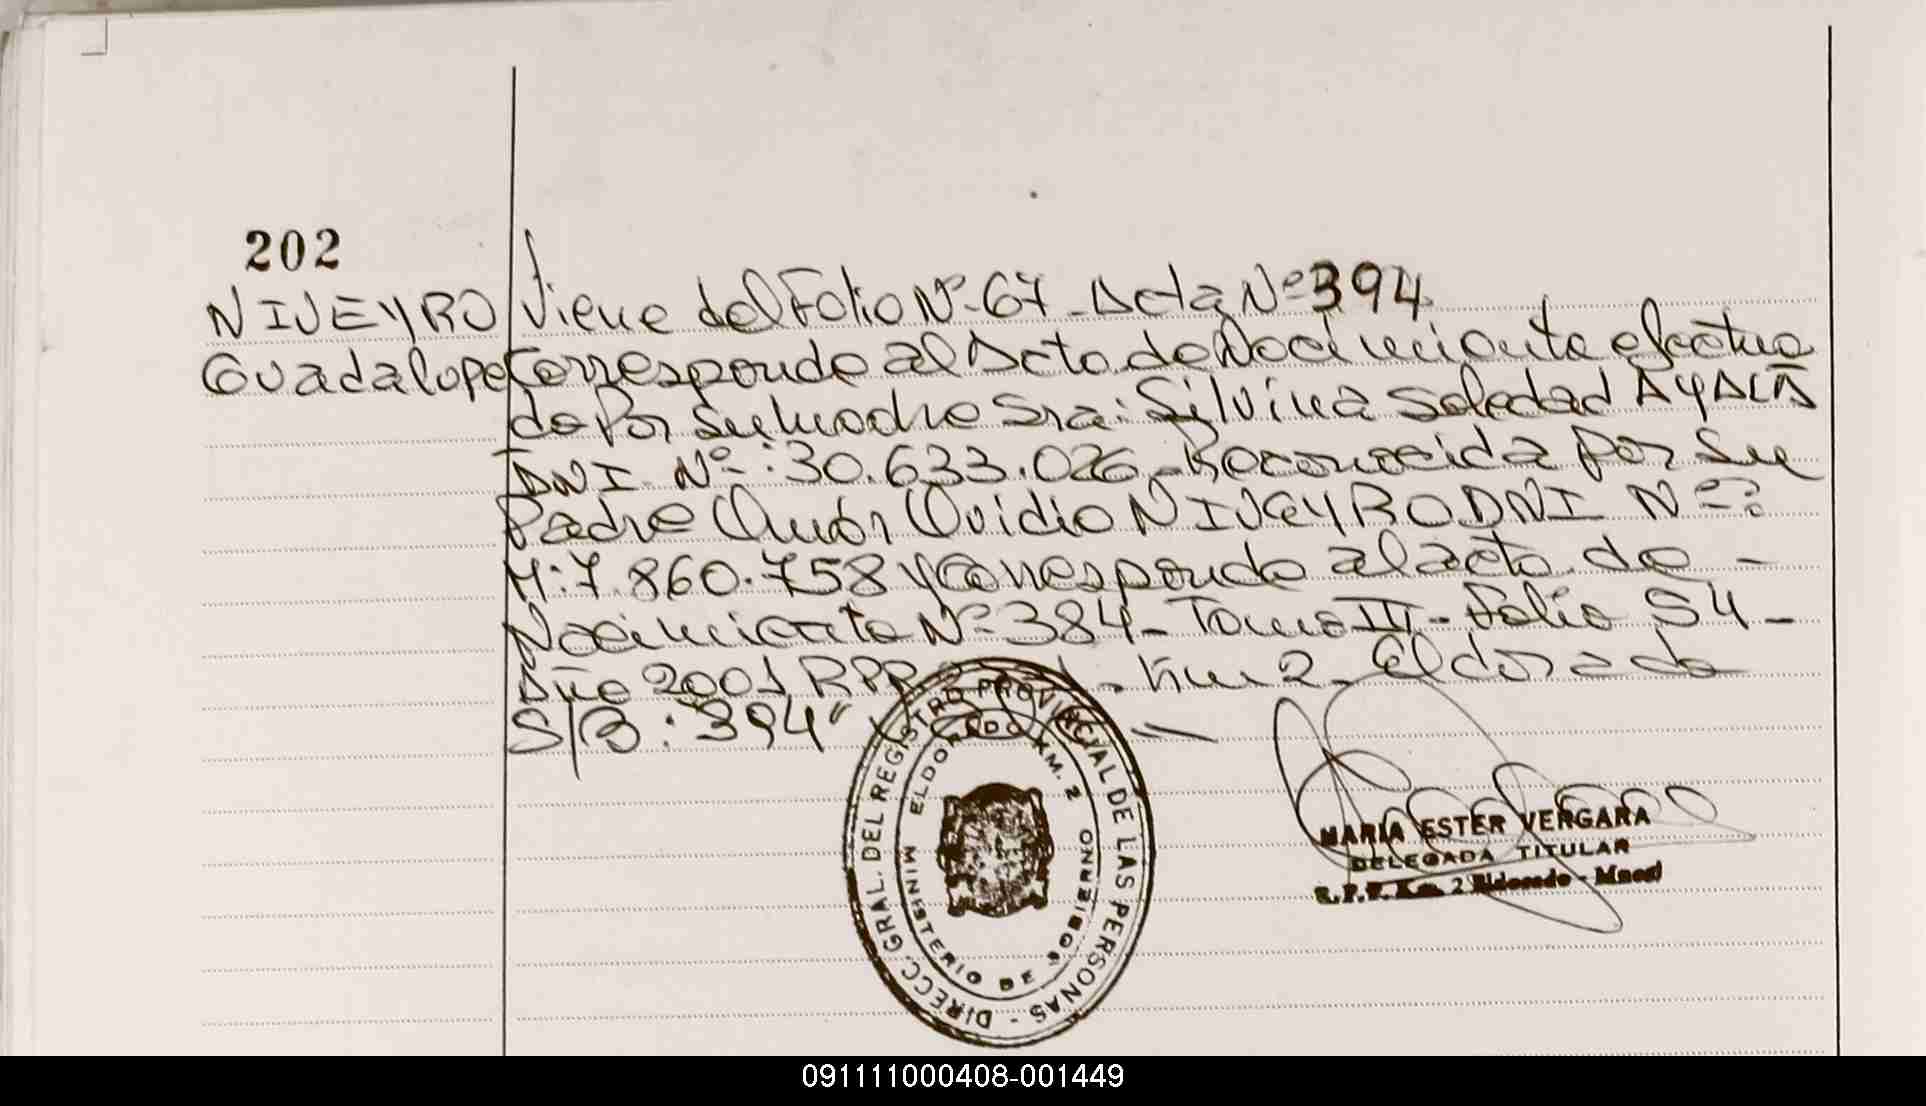 202
NIVEYRO
Guadalupe
Viene del Folio Nº-67-Acta Nº394
Corresponde al Acta de Nacimiento efectua
do Por su madre Sra: Silvina Soledad AYALA
DNI Nº-:30.633.026-Reconocida Por su
Padre Omar Ovidio NIVEYRO DNI Nº-:
M:7.860.758 y Corresponde al acta de -
Nacimiento Nº-384-Tomo III-Folio 54-
Año 2001 RPP - Km 2- Eldorado
S/B: 394"
DIRECC. GRAL. DEL REGISTRO PROVINCIAL DE LAS PERSONAS -
MINISTERIO DE GOBIERNO
ELDORADO KM. 2
MARIA ESTER VERGARA
DELEGADA TITULAR
R.P.P. Km. 2 Eldorado - Mnes
091111000408-001449